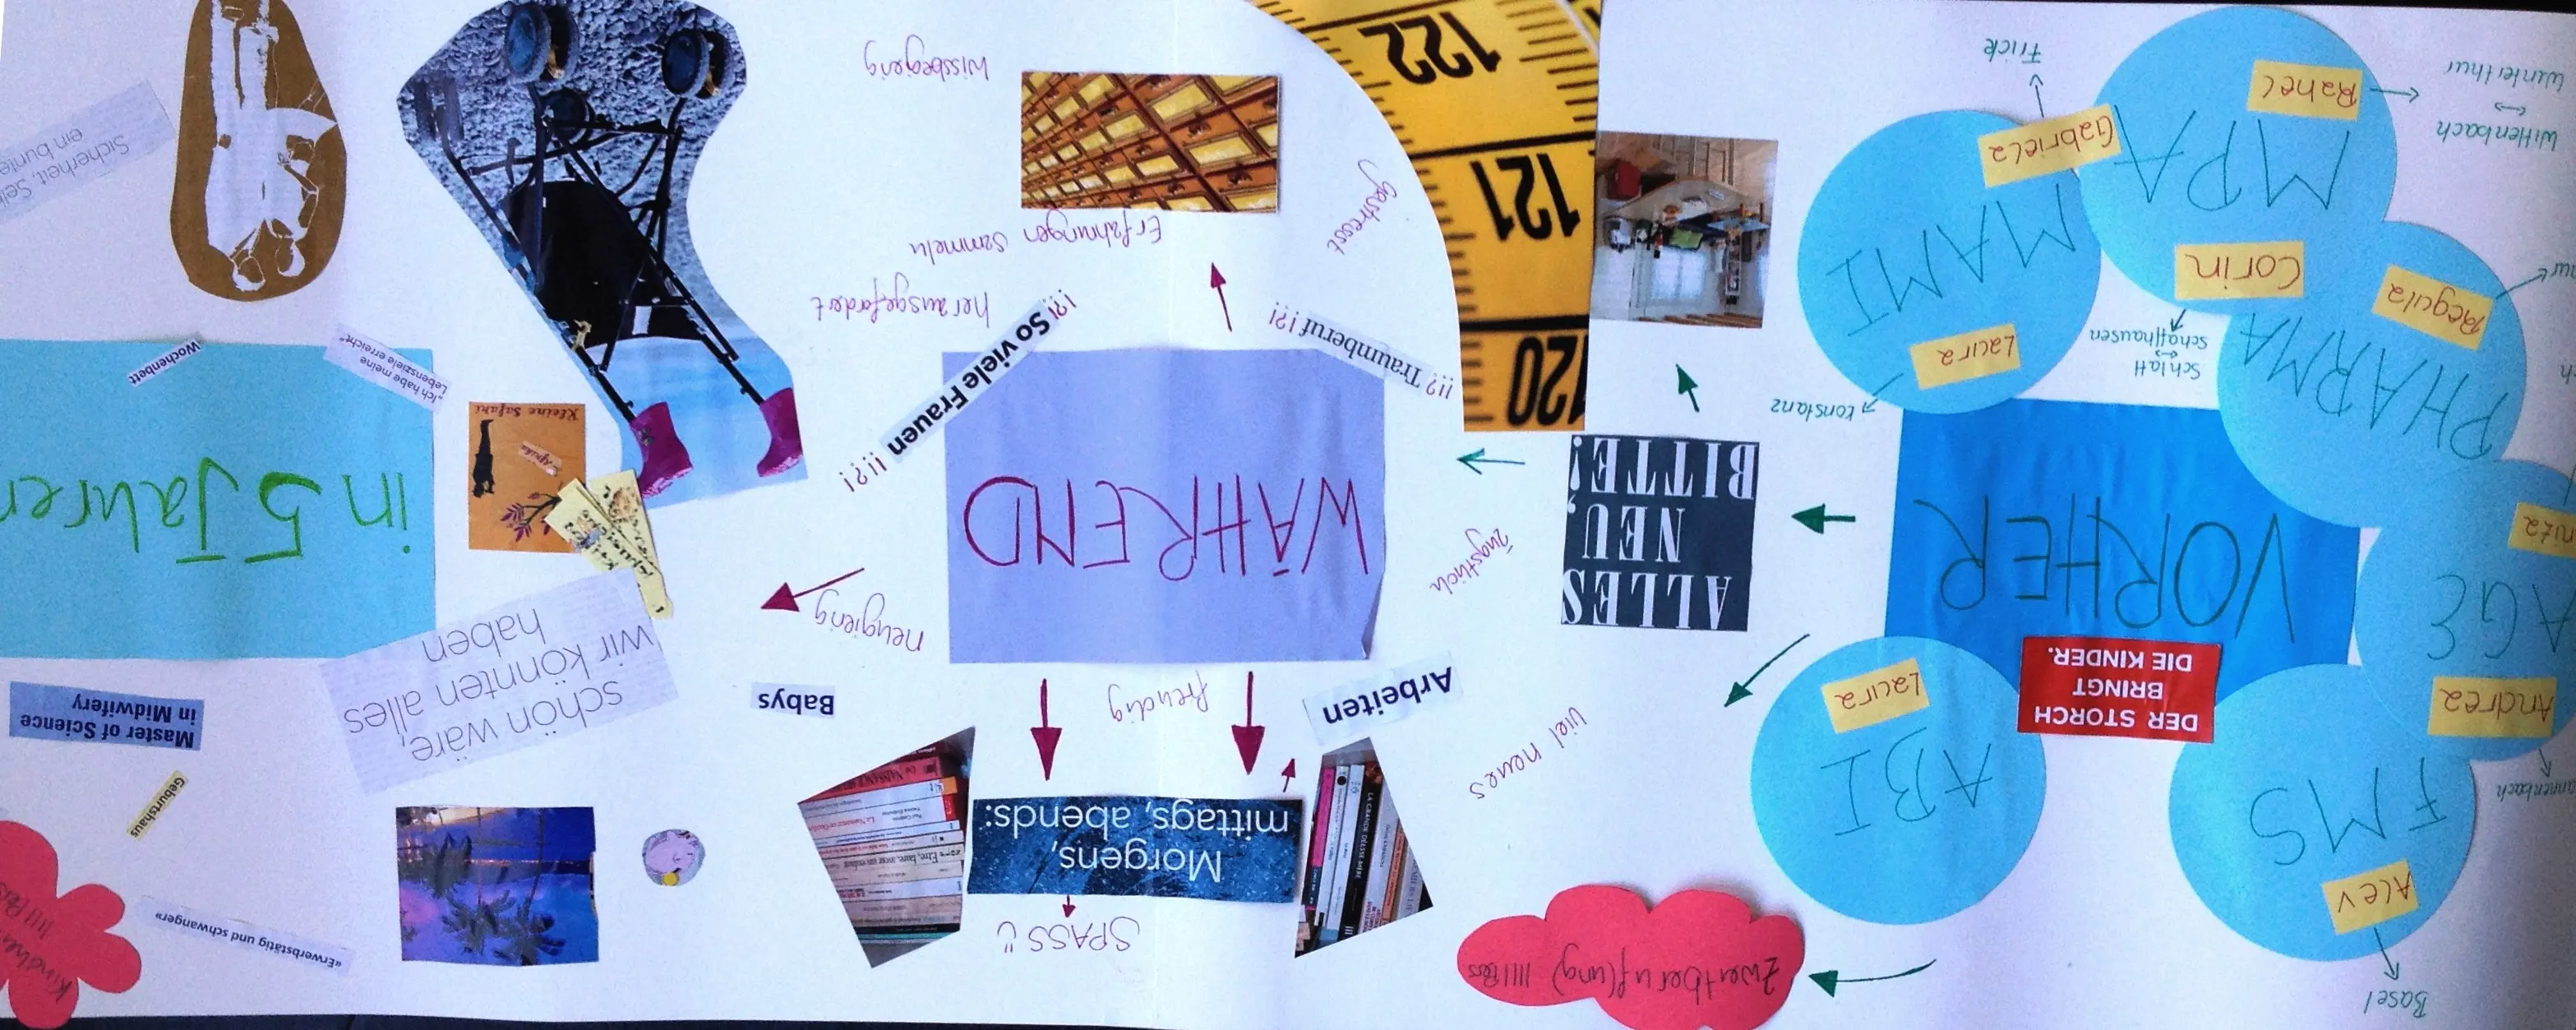 Basel
Alev
FMS
Andrea
AGE
DER STORCH
BRINGT
DIE KINDER.
VORHER
ABI
Laura
Zweitberuf(ung)
PHARMA
Regula
Schlatt
↔
Schaffhausen
Corin
MPA
Rahel
Wittenbach
↔
Winterthur
MAMI
Laura
Konstanz
Gabriela
Frick
viel neues
ALLES
NEU,
BITTE!
ängstlich
120
121
122
gestresst
SPASS
Morgens,
mittags, abends:
Arbeiten
freudig
Babys
WÄHREND
neugierig
!!? Traumberuf !?!
!!?!! So viele Frauen !?!
herausgefordert
Erfahrungen sammeln
wissbegierig
schön wäre,
wir könnten alles
haben
Kleine Safari
Afrika
«Erwerbstätig und schwanger»
Geburtshaus
Master of Science
in Midwifery
in 5 Jahren
"Ich habe meine
Lebensziele erreicht"
Wochenbett
Sicherheit,